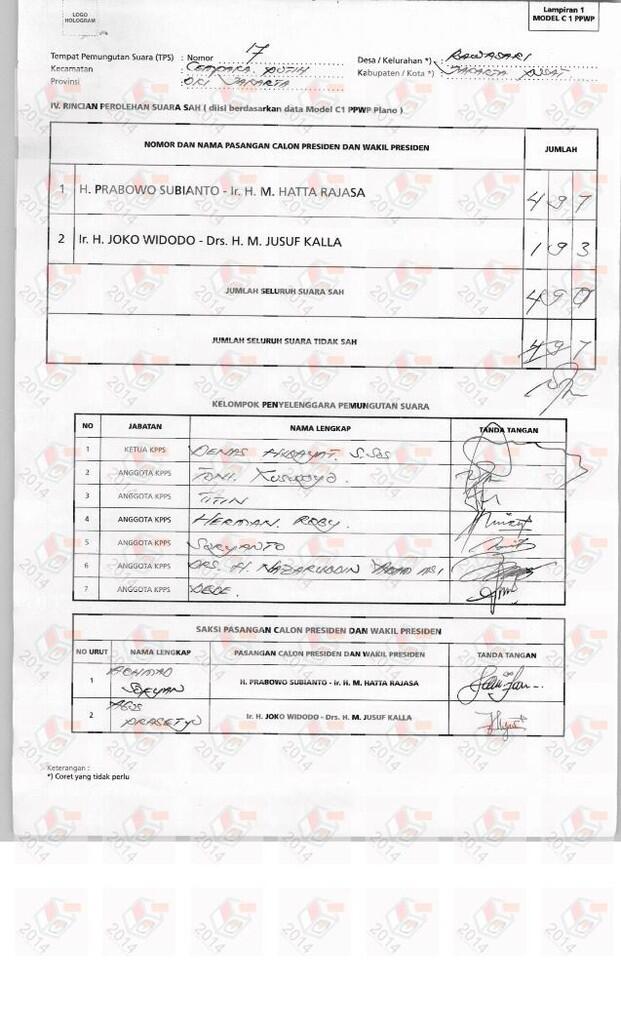 LOGO
HOLOGRAM
Lampiran 1
MODEL C 1 PPWP
Tempat Pemungutan Suara (TPS) : Nomor 7 Desa / Kelurahan *) : RAWASARI
Kecamatan : CEMPAKA PUTIH Kabupaten / Kota *) : JAKARTA PUSAT
Provinsi : DKI JAKARTA
IV. RINCIAN PEROLEHAN SUARA SAH ( diisi berdasarkan data Model C1 PPWP Plano )
NOMOR DAN NAMA PASANGAN CALON PRESIDEN DAN WAKIL PRESIDEN JUMLAH
1 H. PRABOWO SUBIANTO - Ir. H. M. HATTA RAJASA 4 9 7
2 Ir. H. JOKO WIDODO - Drs. H. M. JUSUF KALLA 1 9 3
JUMLAH SELURUH SUARA SAH 4 9 0
JUMLAH SELURUH SUARA TIDAK SAH 9 7
KELOMPOK PENYELENGGARA PEMUNGUTAN SUARA
NO JABATAN NAMA LENGKAP TANDA TANGAN
1 KETUA KPPS DENAS HIDAYAT. S.Sos
2 ANGGOTA KPPS TONI.
3 ANGGOTA KPPS TITIN
4 ANGGOTA KPPS HERMAN. ROBY.
5 ANGGOTA KPPS SURYANTO
6 ANGGOTA KPPS DRS. H. NAZARUDDIN
7 ANGGOTA KPPS DEDE.
SAKSI PASANGAN CALON PRESIDEN DAN WAKIL PRESIDEN
NO URUT NAMA LENGKAP PASANGAN CALON PRESIDEN DAN WAKIL PRESIDEN TANDA TANGAN
1 ACHMAD SOFYAN H. PRABOWO SUBIANTO - Ir. H. M. HATTA RAJASA
2 AGUS PRASETYO Ir. H. JOKO WIDODO - Drs. H. M. JUSUF KALLA
Keterangan :
*) Coret yang tidak perlu